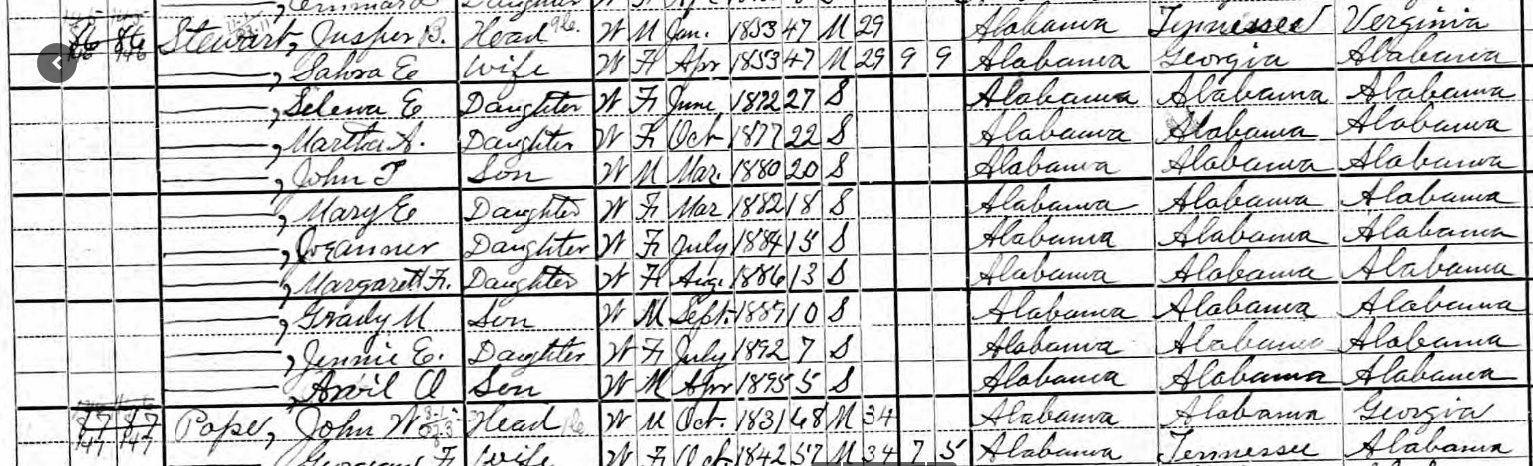 Daughter W F
86 86 Stewart, Jusper B. Head W M Jan. 1853 47 M 29 Alabama Tennessee Verginia
—, Sahra E Wife W F Apr 1853 47 M 29 9 9 Alabama Georgia Alabama
—, Selewa E Daughter W F June 1872 27 S Alabama Alabama Alabama
—, Martha A. Daughter W F Oct 1877 22 S Alabama Alabama Alabama
—, John T Son W M Mar. 1880 20 S Alabama Alabama Alabama
—, Mary E Daughter W F Mar 1882 18 S Alabama Alabama Alabama
—, Joeanner Daughter W F July 1884 15 S Alabama Alabama Alabama
—, Margarett F. Daughter W F Aug. 1886 13 S Alabama Alabama Alabama
—, Grady M Son W M Sept. 1889 10 S Alabama Alabama Alabama
—, Jennie E. Daughter W F July 1892 7 S Alabama Alabama Alabama
—, Arvil O Son W M Apr 1895 5 S Alabama Alabama Alabama
87 87 Pope, John W Head W M Oct. 1831 68 M 34 Alabama Alabama Georgia
F Wife W F Oct 1842 57 M 34 7 5 Alabama Tennessee Alabama